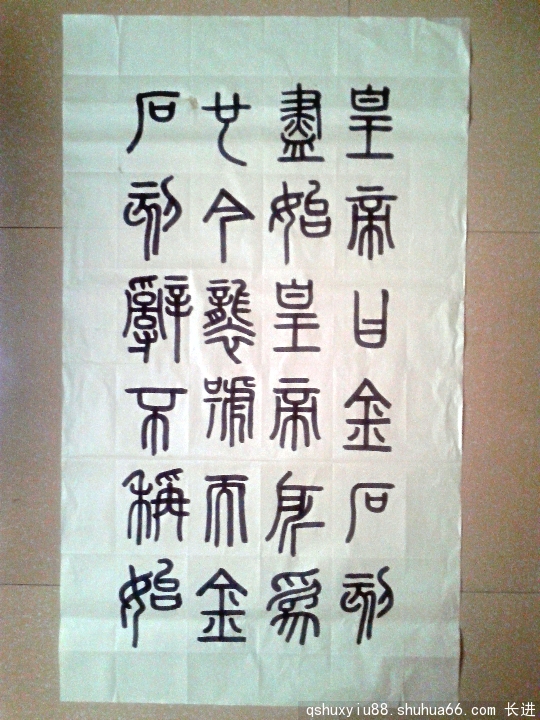 皇帝曰金石刻
盡始皇帝所爲
也今襲號而金
石刻辭不稱始
qshuxyiu88.shuhua66.com 长进